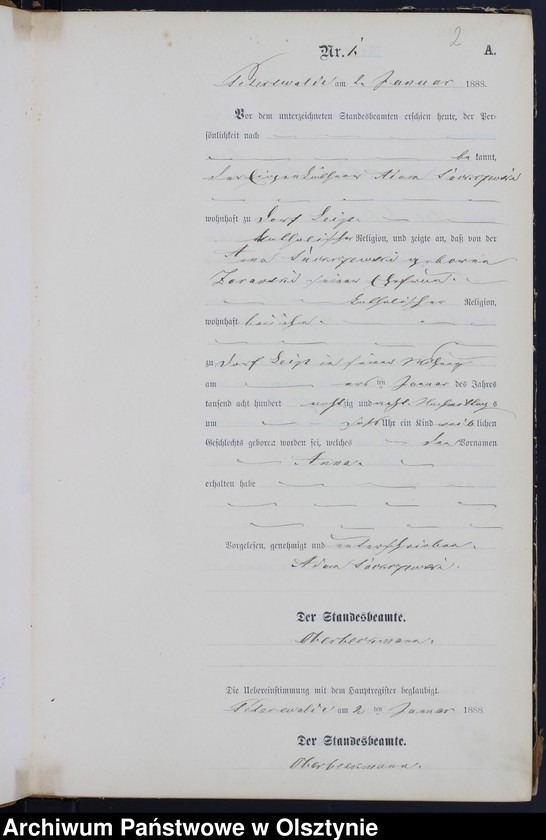 2
Nr. 1. A.
Peterswalde am 2. Januar 1888.
Vor dem unterzeichneten Standesbeamten erschien heute, der Per-
sönlichkeit nach
be kannt,
der Eigenkäthner Adam
wohnhaft zu Dorf Leip
katholischer Religion, und zeigte an, daß von der
Anna geborenen
seiner Ehefrau
katholischer Religion,
wohnhaft bei ihm
zu Dorf Leip in seiner Wohnung
am ersten Januar des Jahres
tausend acht hundert achtzig und acht Nachmittags
um Uhr ein Kind weib lichen
Geschlechts geboren worden sei, welches den Vornamen
Anna
erhalten habe
Vorgelesen, genehmigt und unterschrieben.
Adam
Der Standesbeamte.
Oberbeckmann.
Die Uebereinstimmung mit dem Hauptregister beglaubigt.
Peterswalde am 2 ten Januar 1888.
Der Standesbeamte.
Oberbeckmann.
Archiwum Państwowe w Olsztynie